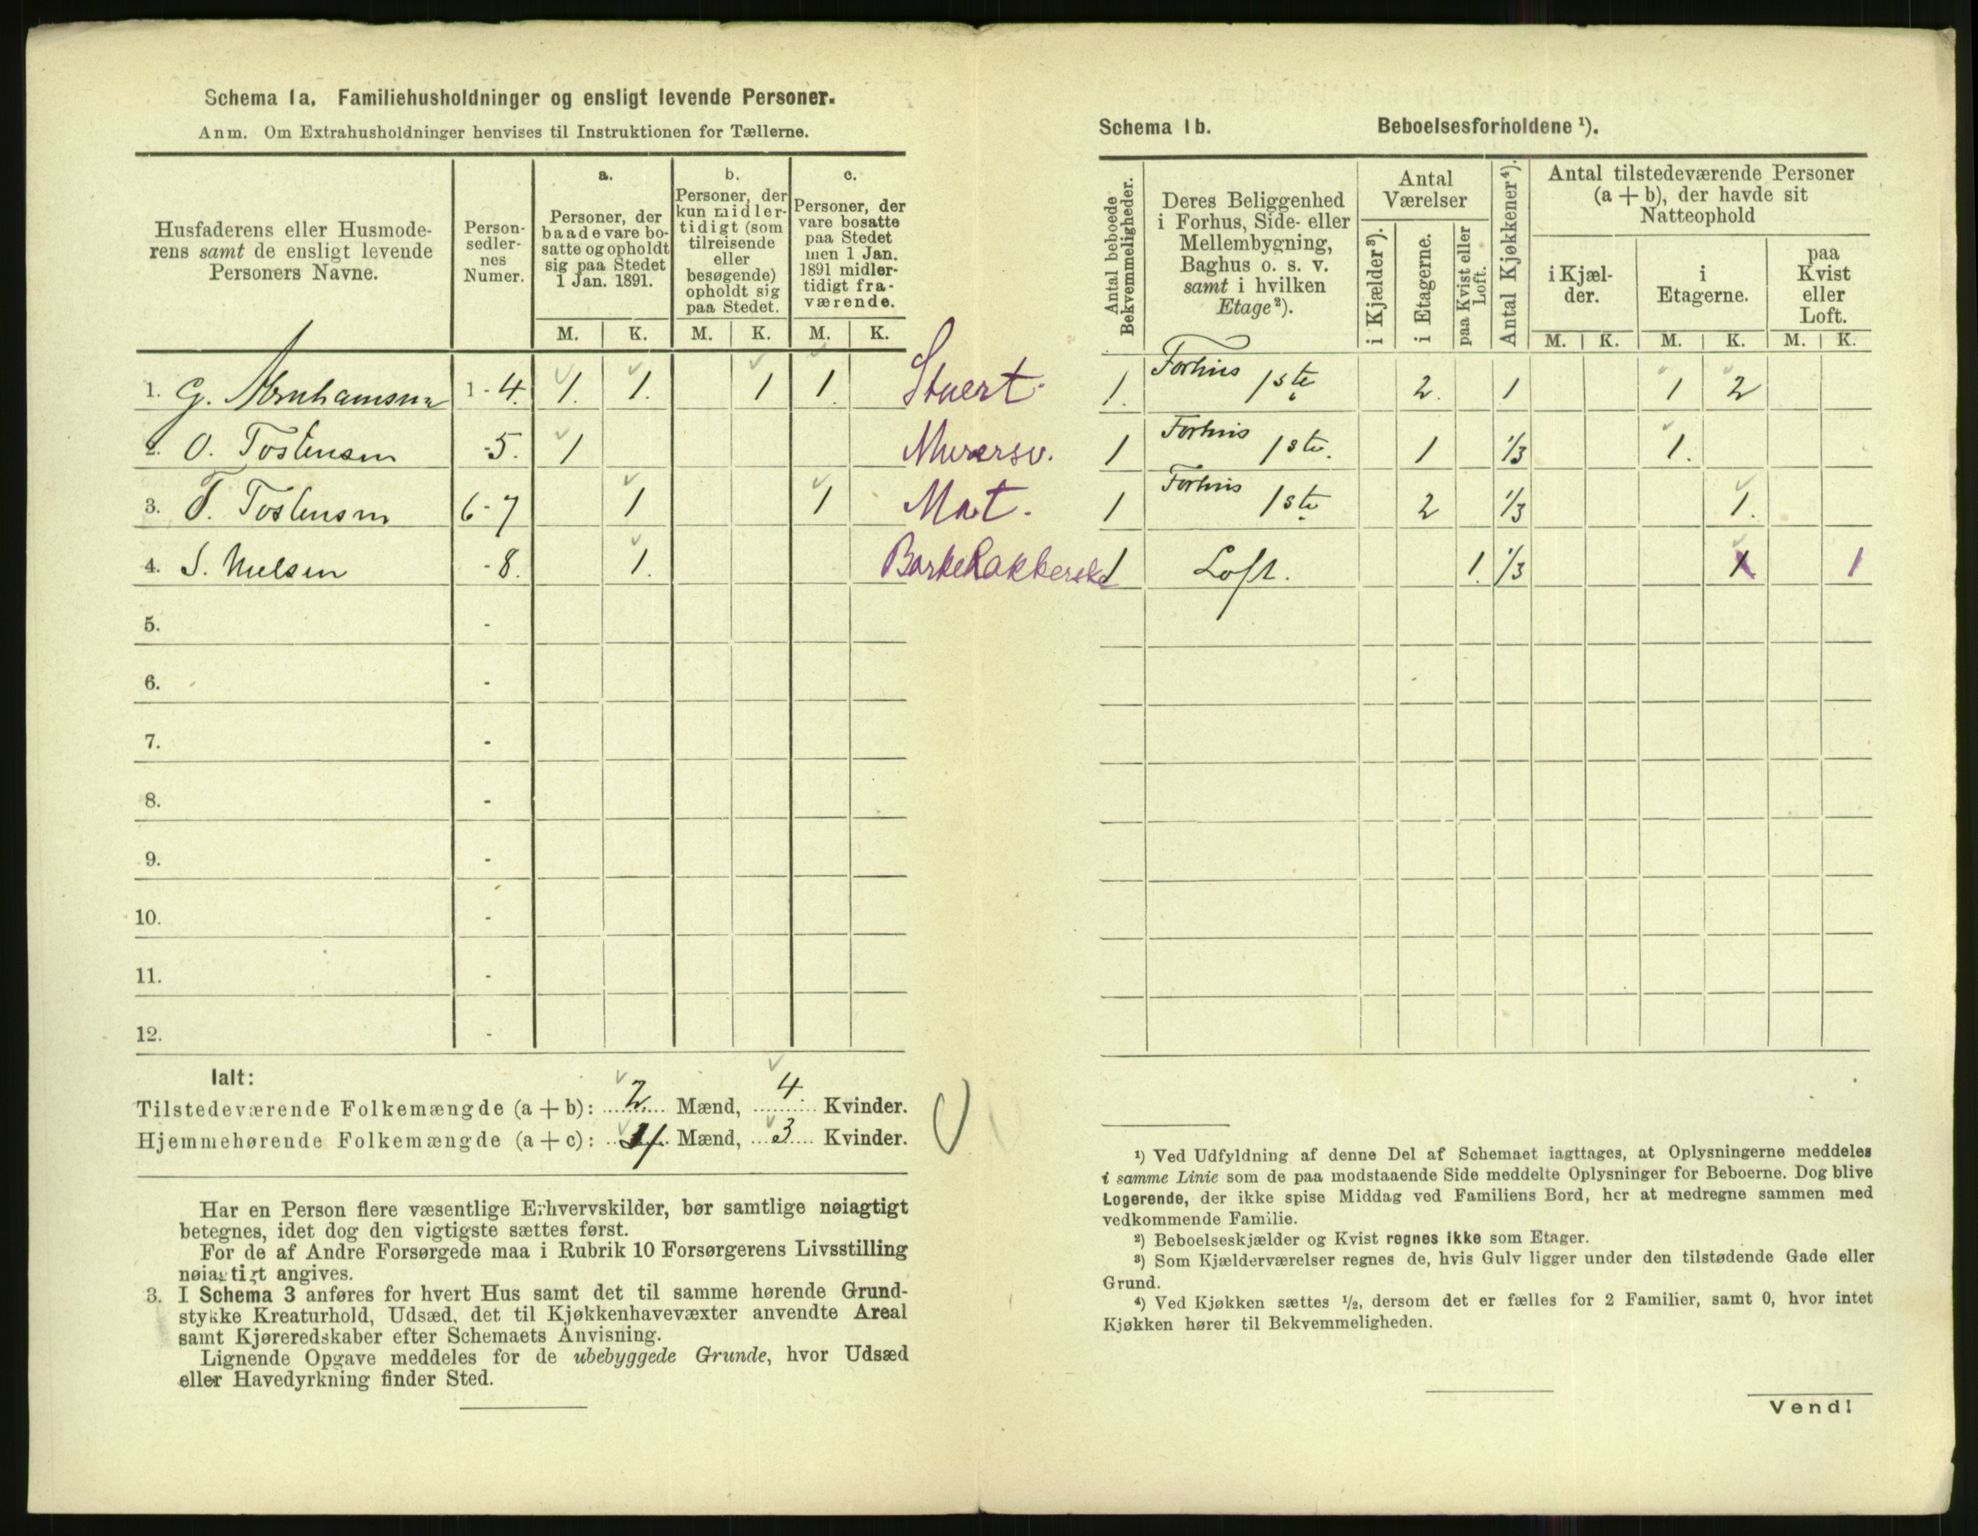 Schema 1a. Familiehusholdninger og ensligt levende Personer.
Anm. Om Extrahusholdninger henvises til Instruktionen for Tællerne.
Husfaderens eller Husmode-
rens samt de ensligt levende
Personers Navne.
Person-
sedler-
nes
Numer.
a.
Personer, der
baade vare bo-
satte og opholdt
sig paa Stedet
1 Jan. 1891.
b.
Personer, der
kun midler-
tidigt (som
tilreisende
eller
besøgende)
opholdt sig
paa Stedet.
c.
Personer, der
vare bosatte
paa Stedet
men 1 Jan.
1891 midler-
tidigt fra-
værende.
M. K. M. K. M. K.
1. G. Abrahamsen 1-4. 1. 1. 1 1. Stuert.
2. O. Tostensen -5. 1 Murersv.
3. T. Tostensen 6-7 1 1 Mat.
4. S. Nielsen -8. 1.
5. -
6. -
7. -
8. -
9. -
10. -
11. -
12. -
Ialt:
Tilstedeværende Folkemængde (a + b): 2 Mænd, 4. Kvinder.
Hjemmehørende Folkemængde (a + c): 4 Mænd, 3 Kvinder.
Har en Person flere væsentlige Erhvervskilder, bør samtlige nøiagtigt
betegnes, idet dog den vigtigste sættes først.
For de af Andre Forsørgede maa i Rubrik 10 Forsørgerens Livsstilling
nøiagtigt angives.
3. I Schema 3 anføres for hvert Hus samt det til samme hørende Grund-
stykke Kreaturhold, Udsæd, det til Kjøkkenhavevæxter anvendte Areal
samt Kjøreredskaber efter Schemaets Anvisning.
Lignende Opgave meddeles for de ubebyggede Grunde, hvor Udsæd
eller Havedyrkning finder Sted.
Schema 1b. Beboelsesforholdene ¹).
Antal beboede
Bekvemmeligheder.
Deres Beliggenhed
i Forhus, Side- eller
Mellembygning,
Baghus o. s. v.
samt i hvilken
Etage²).
Antal
Værelser
i Kjælder³).
i Etagerne.
paa Kvist eller
Loft.
Antal Kjøkkener⁴).
Antal tilstedeværende Personer
(a + b), der havde sit
Natteophold
i Kjæl-
der.
i
Etagerne.
paa
Kvist
eller
Loft.
M. K. M. K. M. K.
1. Forhus 1ste 2. 1 1 2
1 Forhus 1ste. 1 1/3 1.
1 Forhus 1ste 2 1/3 1.
1 Loft. 1. 1/3 1 1
¹) Ved Udfyldning af denne Del af Schemaet iagttages, at Oplysningerne meddeles
i samme Linie som de paa modstaaende Side meddelte Oplysninger for Beboerne. Dog blive
Logerende, der ikke spise Middag ved Familiens Bord, her at medregne sammen med
vedkommende Familie.
²) Beboelseskjælder og Kvist regnes ikke som Etager.
³) Som Kjælderværelser regnes de, hvis Gulv ligger under den tilstødende Gade eller
Grund.
⁴) Ved Kjøkken sættes ½, dersom det er fælles for 2 Familier, samt 0, hvor intet
Kjøkken hører til Bekvemmeligheden.
Vend!